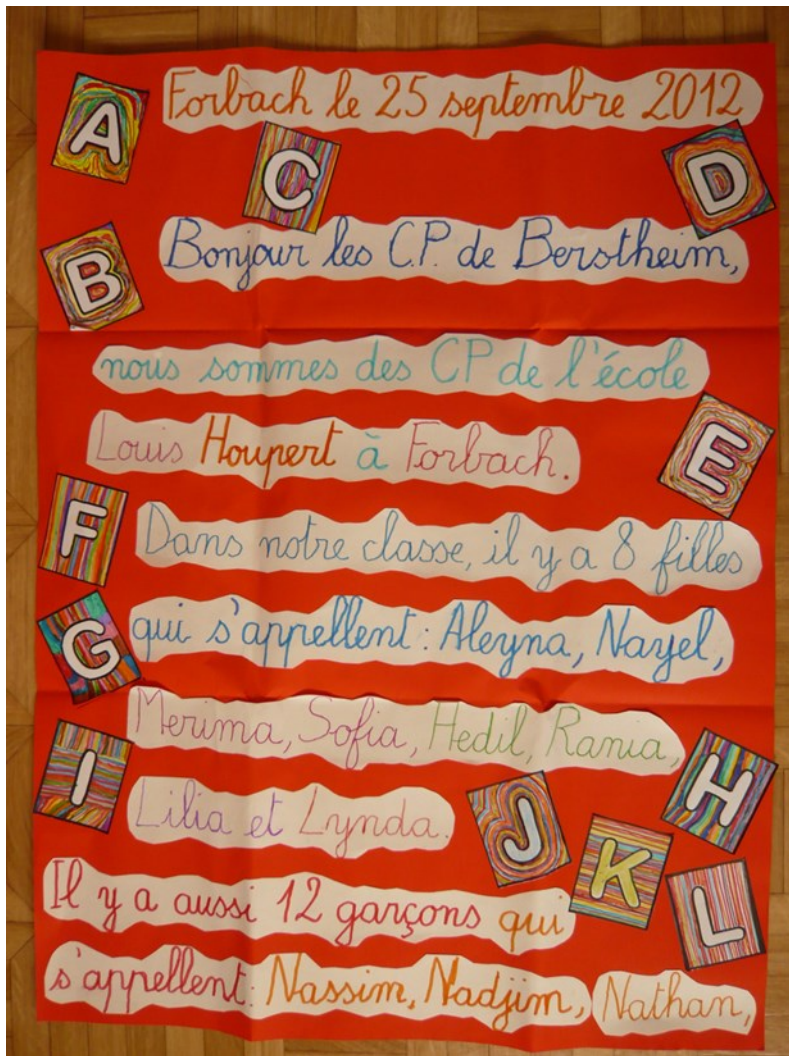 Forbach le 25 septembre 2012
A
C
D
B
Bonjour les C.P. de Berstheim,
nous sommes des CP de l'école
Louis Houpert à Forbach.
E
F
Dans notre classe, il y a 8 filles
G
qui s'appellent : Aleyna, Nayel,
Merima, Sofia, Hedil, Rania,
I
H
Lilia et Lynda.
J
K
L
Il y a aussi 12 garçons qui
s'appellent : Nassim, Nadjim, Nathan,